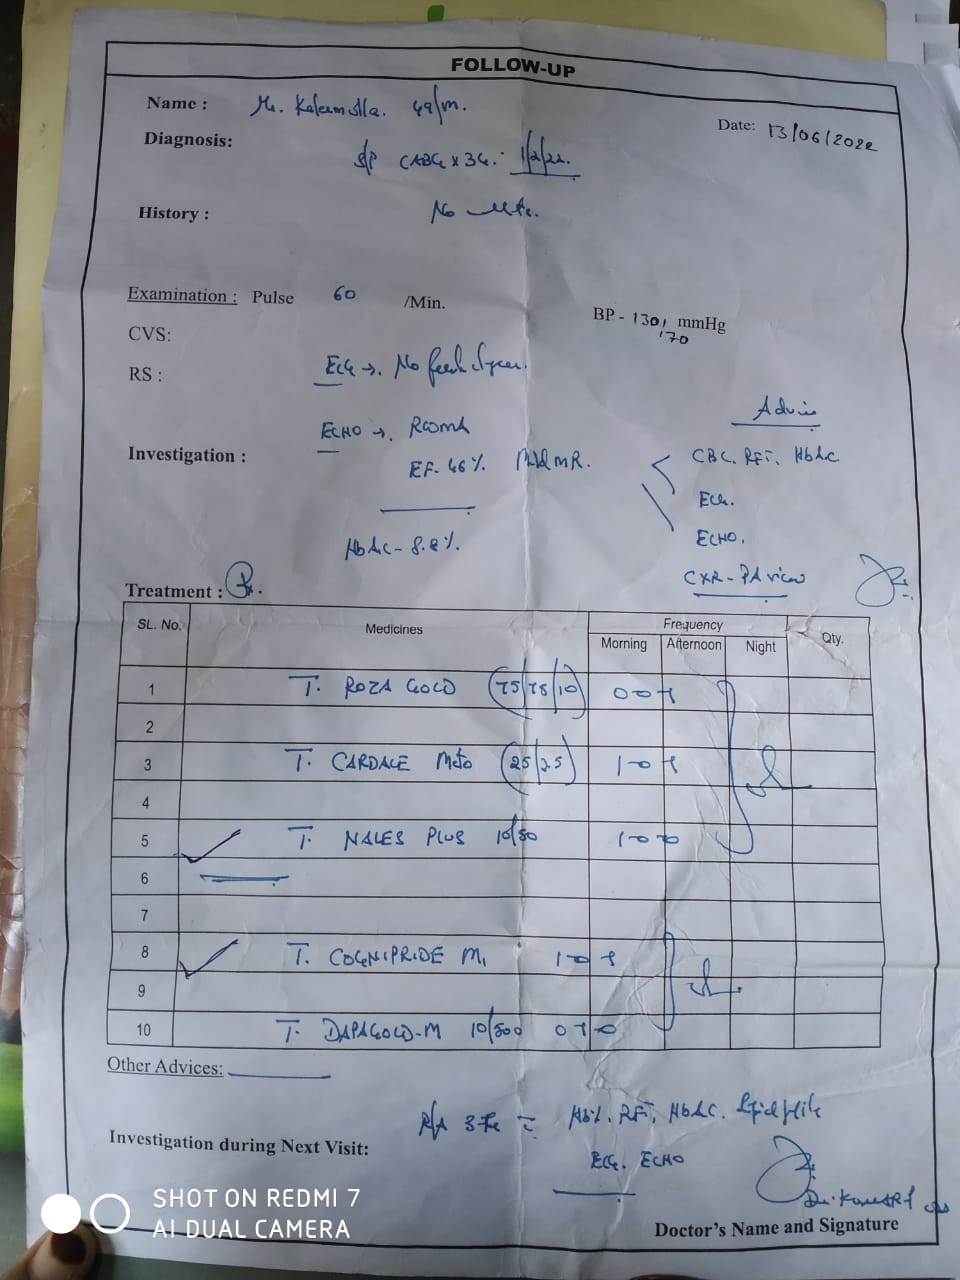 FOLLOW-UP
Name : Mr. 49/m.
Date: 13/06/2022
Diagnosis: S/P CABG x 3G. 1/2/22.
History : No
Examination : Pulse 60 /Min.
BP - 130/70 mmHg
CVS:
RS :
ECG →. No fresh
ECHO →. RWMA
Investigation : EF- 46%. Mild MR.
HbA1C - 8.8%.
Advice
CBC. RFT. HbA1C
ECG.
ECHO.
CXR - PA view
Treatment : Rx.
SL. No. Medicines Frequency Qty.
Morning Afternoon Night
1 T. ROZA GOLD (75/75/10) 0-0-1
2
3 T. CARDACE Meto (25/2.5) 1-0-1
4
5 T. NALES PLUS 10/50 1-0-0
6
7
8 T. COGNIPRIDE M1 1-0-1
9
10 T. DAPAGOLD-M 10/500 0-1-0
Other Advices:
Hb%. RFT, HbA1C. Lipid profile
Investigation during Next Visit: ECG. ECHO
Doctor's Name and Signature
SHOT ON REDMI 7
AI DUAL CAMERA